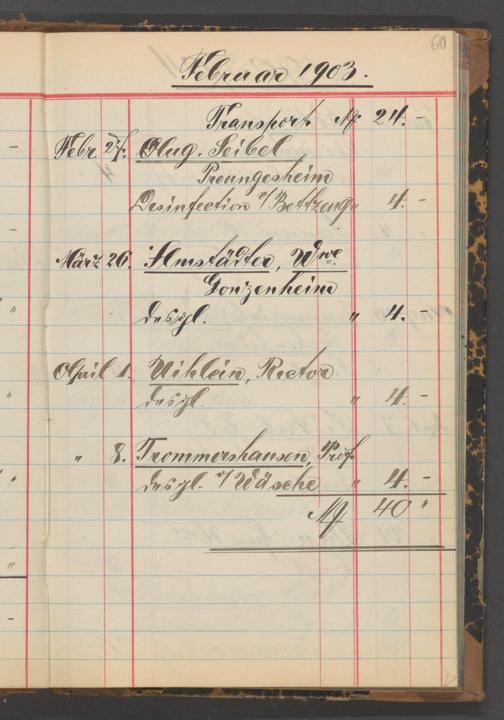 60
Februar 1903.
Transport M 24. -
Febr 27. Aug. Seibel
Preungesheim
Desinfection v/ Bettzeug " 4. -
März 26. Armstädter, Wwe.
Gonzenheim
desgl. " 4. -
April 1. Uihlein, Rector
desgl. " 4. -
" 8. Trommershausen, Prof.
desgl. v/ Wäsche " 4. -
M 40 "